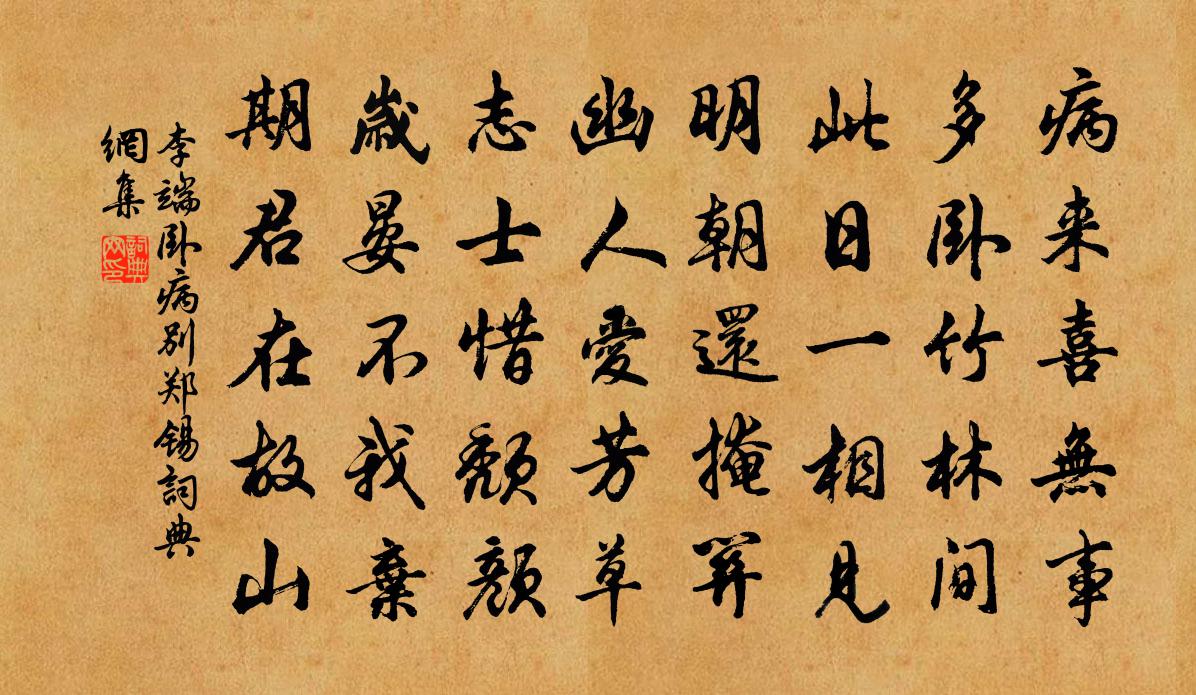 病来喜無事
多卧竹林間
此日一相見
明朝還掩關
幽人愛芳草
志士惜頹顏
歲晏不我棄
期君在故山
李端卧病别郑錫詞典
網集
詞典
网印